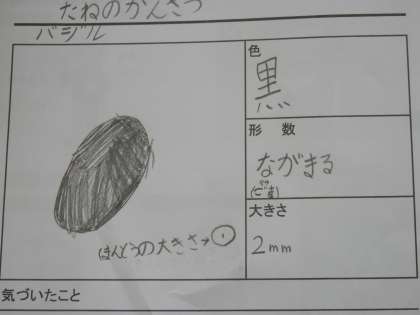 たねのかんさつ
バジル
色
黒
形 数
ながまる
大きさ
2mm
ほんとうの大きさ→
気づいたこと